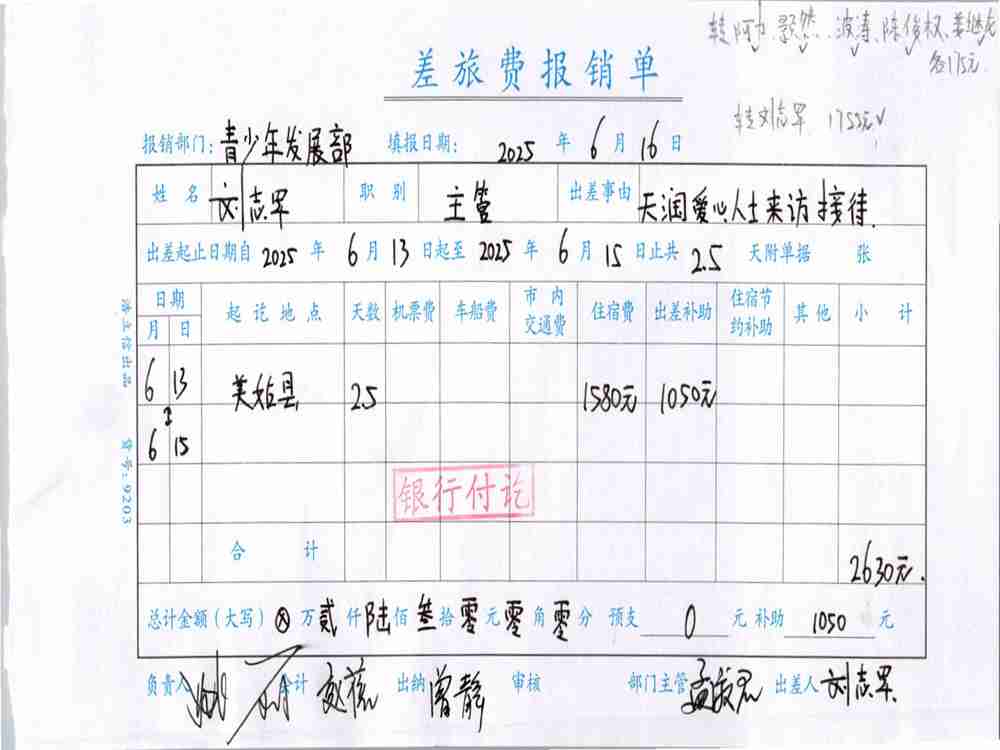 转阿力、颢然、波涛、陈俊权、姜继龙
各175元
差旅费报销单
转刘志罕 1755元√
报销部门：青少年发展部 填报日期： 2025 年 6 月 16 日
姓 名 刘志罕 职 别 主管 出差事由 天润爱心人士来访接待.
出差起止日期自 2025 年 6 月 13 日起至 2025 年 6 月 15 日止共 2.5 天附单据 张
日期 起 讫 地 点 天数 机票费 车船费 市 内 交通费 住宿费 出差补助 住宿节约补助 其 他 小 计
月 日
6 13 美姑县 2.5 1580元 1050元
至
6 15
银行付讫
合 计 2630元.
总计金额（大写）⊗ 万 贰 仟 陆 佰 叁 拾 零 元 零 角 零 分 预支 0 元 补助 1050 元
负责人 会计 出纳 曾静 审核 部门主管 出差人 刘志罕
货号：9203